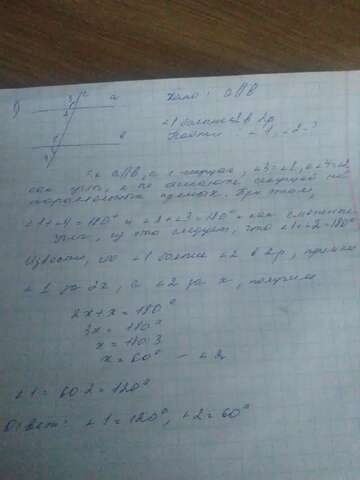 1)
3 c a
2
1 в
4
Дано: a||в
∠1 больше ∠2 в 2р
Найти ∠1, ∠2 - ?
Т.к. a||в, а с - секущая, ∠3=∠2,
параллельных прямых. При этом,
∠1+∠4=180° и ∠2+∠3=180° как смежные
углы, из этого следует, что ∠1+∠2=180°
Известно, что ∠1 больше ∠2 в 2р,
∠1 за 2х, а ∠2 за х, получим
2x+x=180°
3x=180°
x=180:3
x=60° - ∠2
∠1=60·2=120°
Ответ: ∠1=120°, ∠2=60°